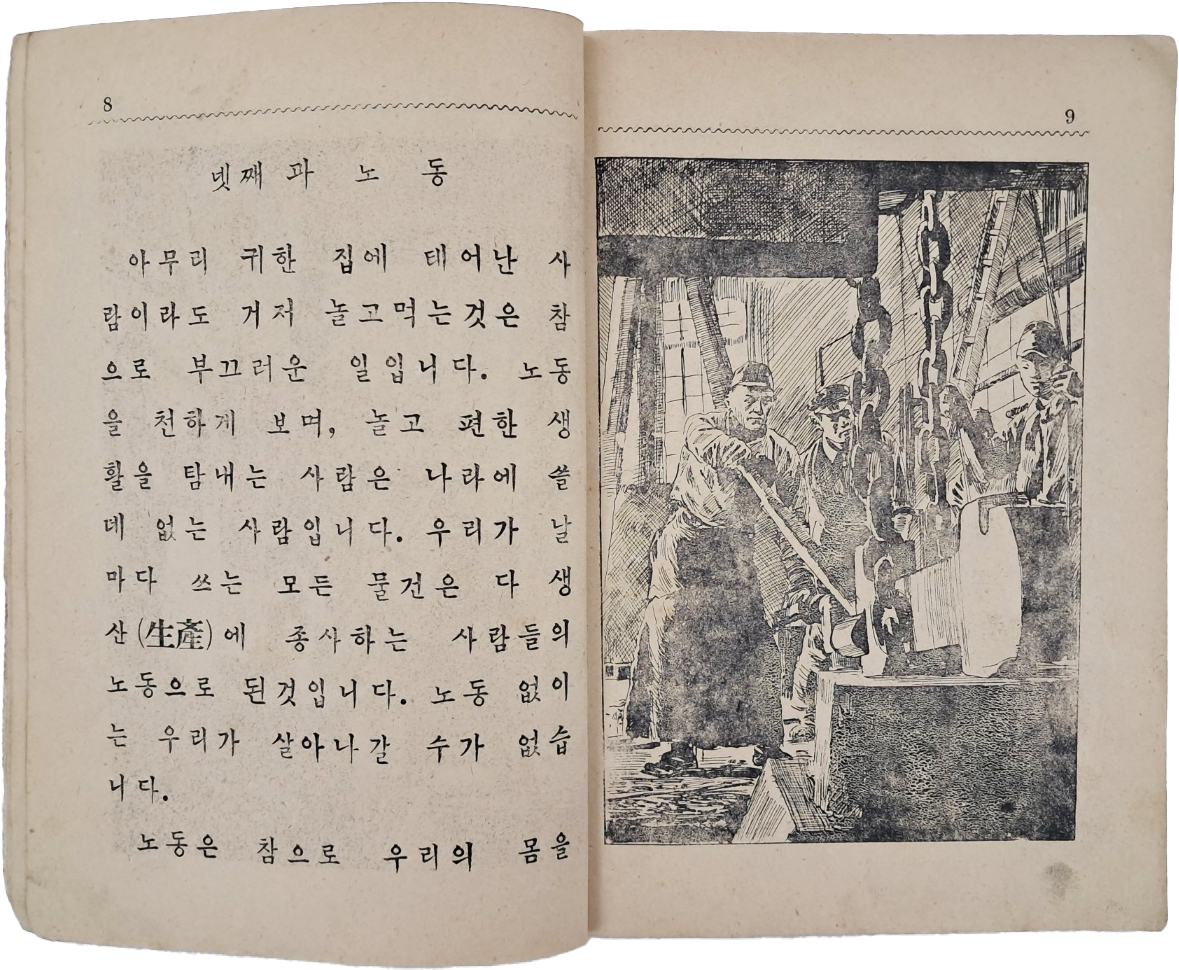 8
넷째 과 노 동
아무리 귀한 집에 태어난 사
람이라도 거저 놀고먹는것은 참
으로 부끄러운 일입니다. 노동
을 천하게 보며, 놀고 편한 생
활을 탐내는 사람은 나라에 쓸
데 없는 사람입니다. 우리가 날
마다 쓰는 모든 물건은 다 생
산(生產)에 종사하는 사람들의
노동으로 된것입니다. 노동 없이
는 우리가 살아나갈 수가 없습
니다.
노동은 참으로 우리의 몸을
9